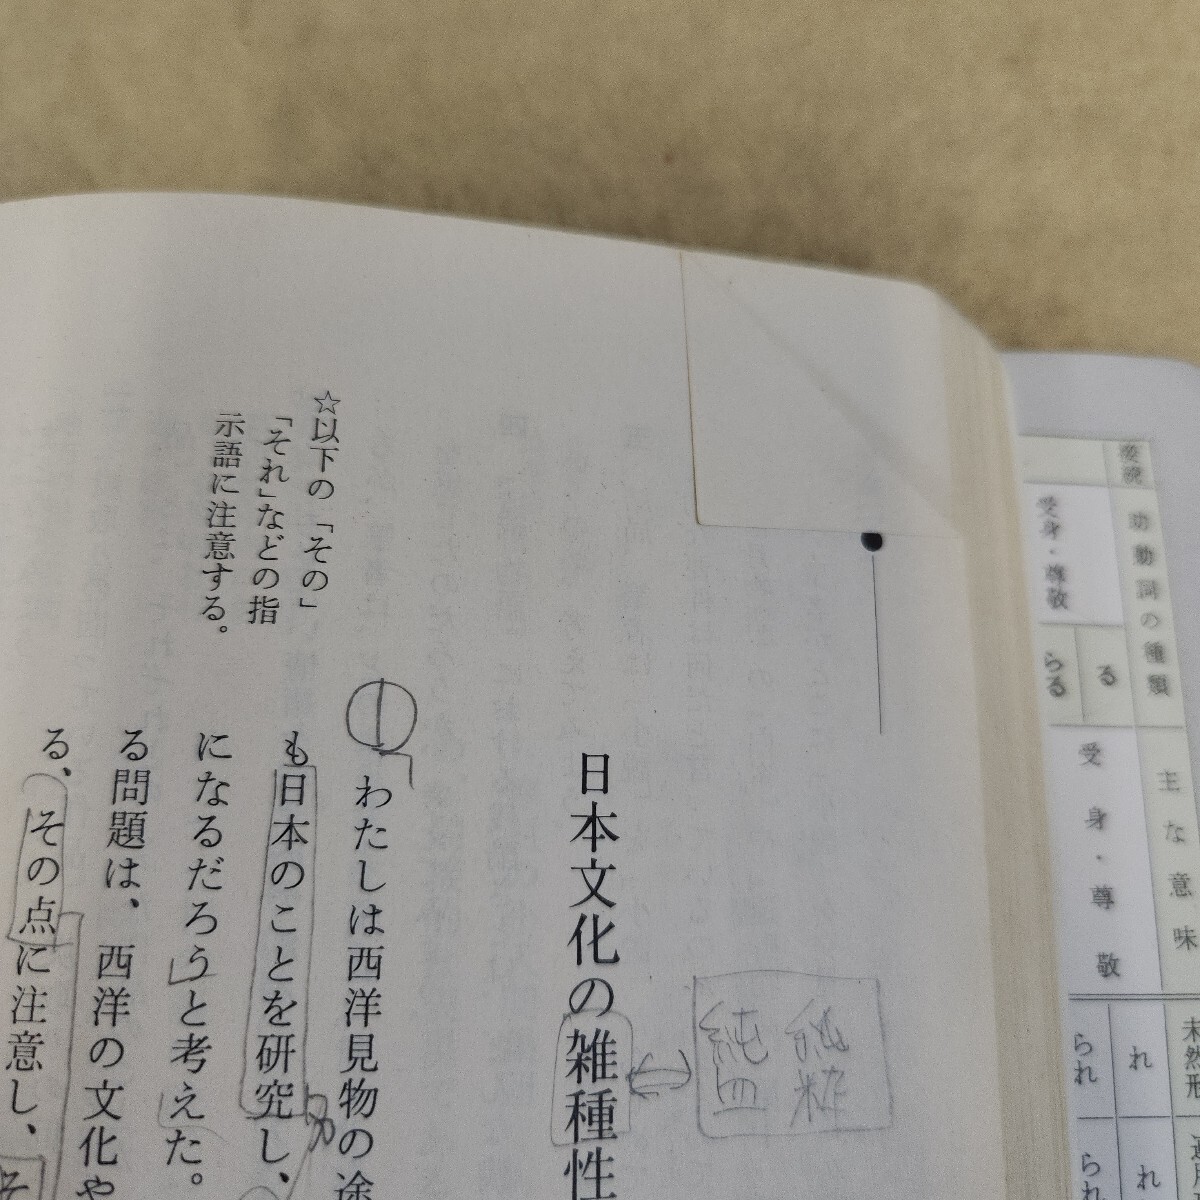 助動詞の種類
主な意味
未然形
受身・尊敬
る
らる
受身・尊敬
れ
られ
れ
られ
純粋
純血
日本文化の雑種性
①
わたしは西洋見物の途
も日本のことを研究し、
になるだろうと考えた。
る問題は、西洋の文化や
る、その点に注意し、そ
☆以下の「その」
「それ」などの指
示語に注意する。